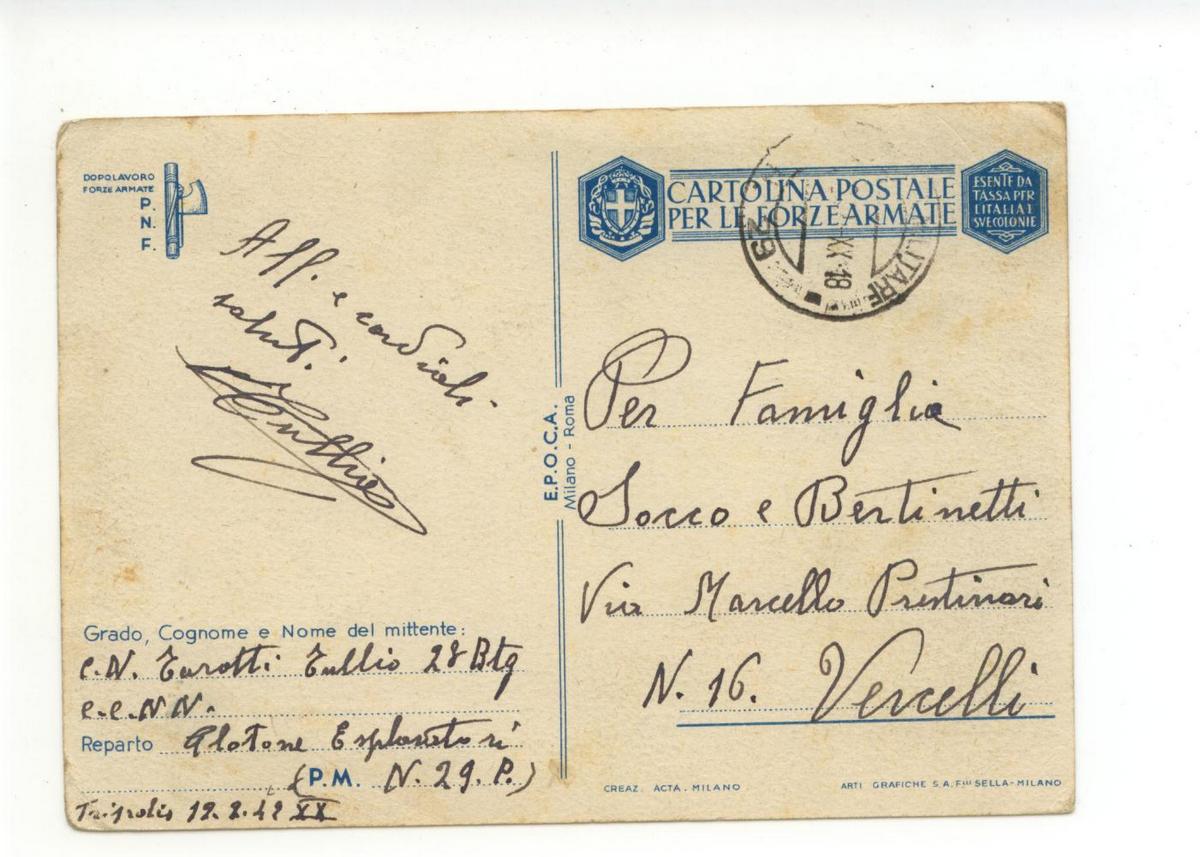 DOPOLAVORO
FORZE ARMATE
P.
N.
F.
Aff. e cordiali
saluti
Tullio
Grado, Cognome e Nome del mittente:
C.N. Tarotti Tullio 28 Btg
C.C.N N.
Reparto Plotone Esploratori
(P.M. N. 29. P.)
Tripolis 12.2.42 XX
E.P.O.C.A.
Milano - Roma
CARTOLINA POSTALE
PER LE FORZE ARMATE
ESENTE DA
TASSA PER
L'ITALIA E
SVE COLONIE
29
XX·18
Per Famiglia
Socco e Bertinetti
Via Marcello Prestinari
N. 16. Vercelli
CREAZ. ACTA. MILANO
ARTI GRAFICHE S.A. Flli SELLA-MILANO